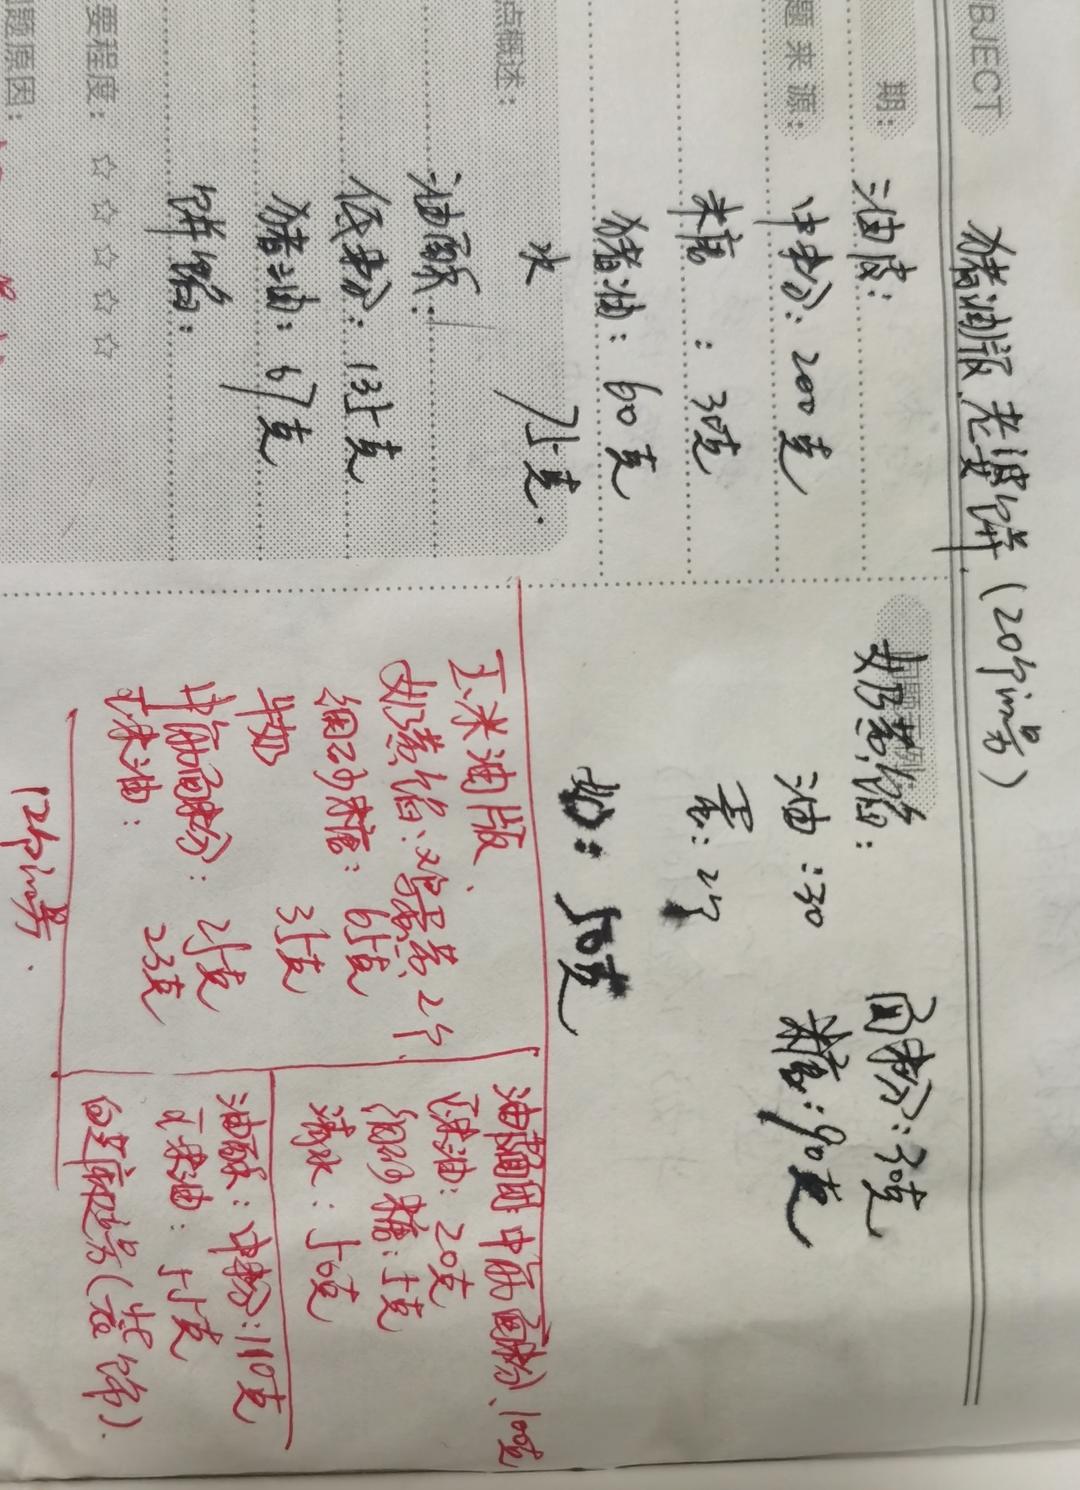 BJECT
猪油版老婆饼(20个量)
期:
油皮:
题来源:
中粉:200克
糖:30克
猪油:60克
水 75克.
点概述:
油酥:
低粉:135克
猪油:67克
饼馅:
要程度:☆☆☆☆☆
题原因:
奶黄馅:
面粉:30克
油:30
糖:90克
蛋:2个
奶:50克
玉米油版、
奶黄馅:鸡蛋2个
细砂糖:65克
牛奶 35克
中筋面粉:25克
玉米油:23克
12个量.
油皮:中筋面粉、100克
玉米油:20克
细砂糖:5克
清水:50克
油酥:中粉:110克
玉米油:55克